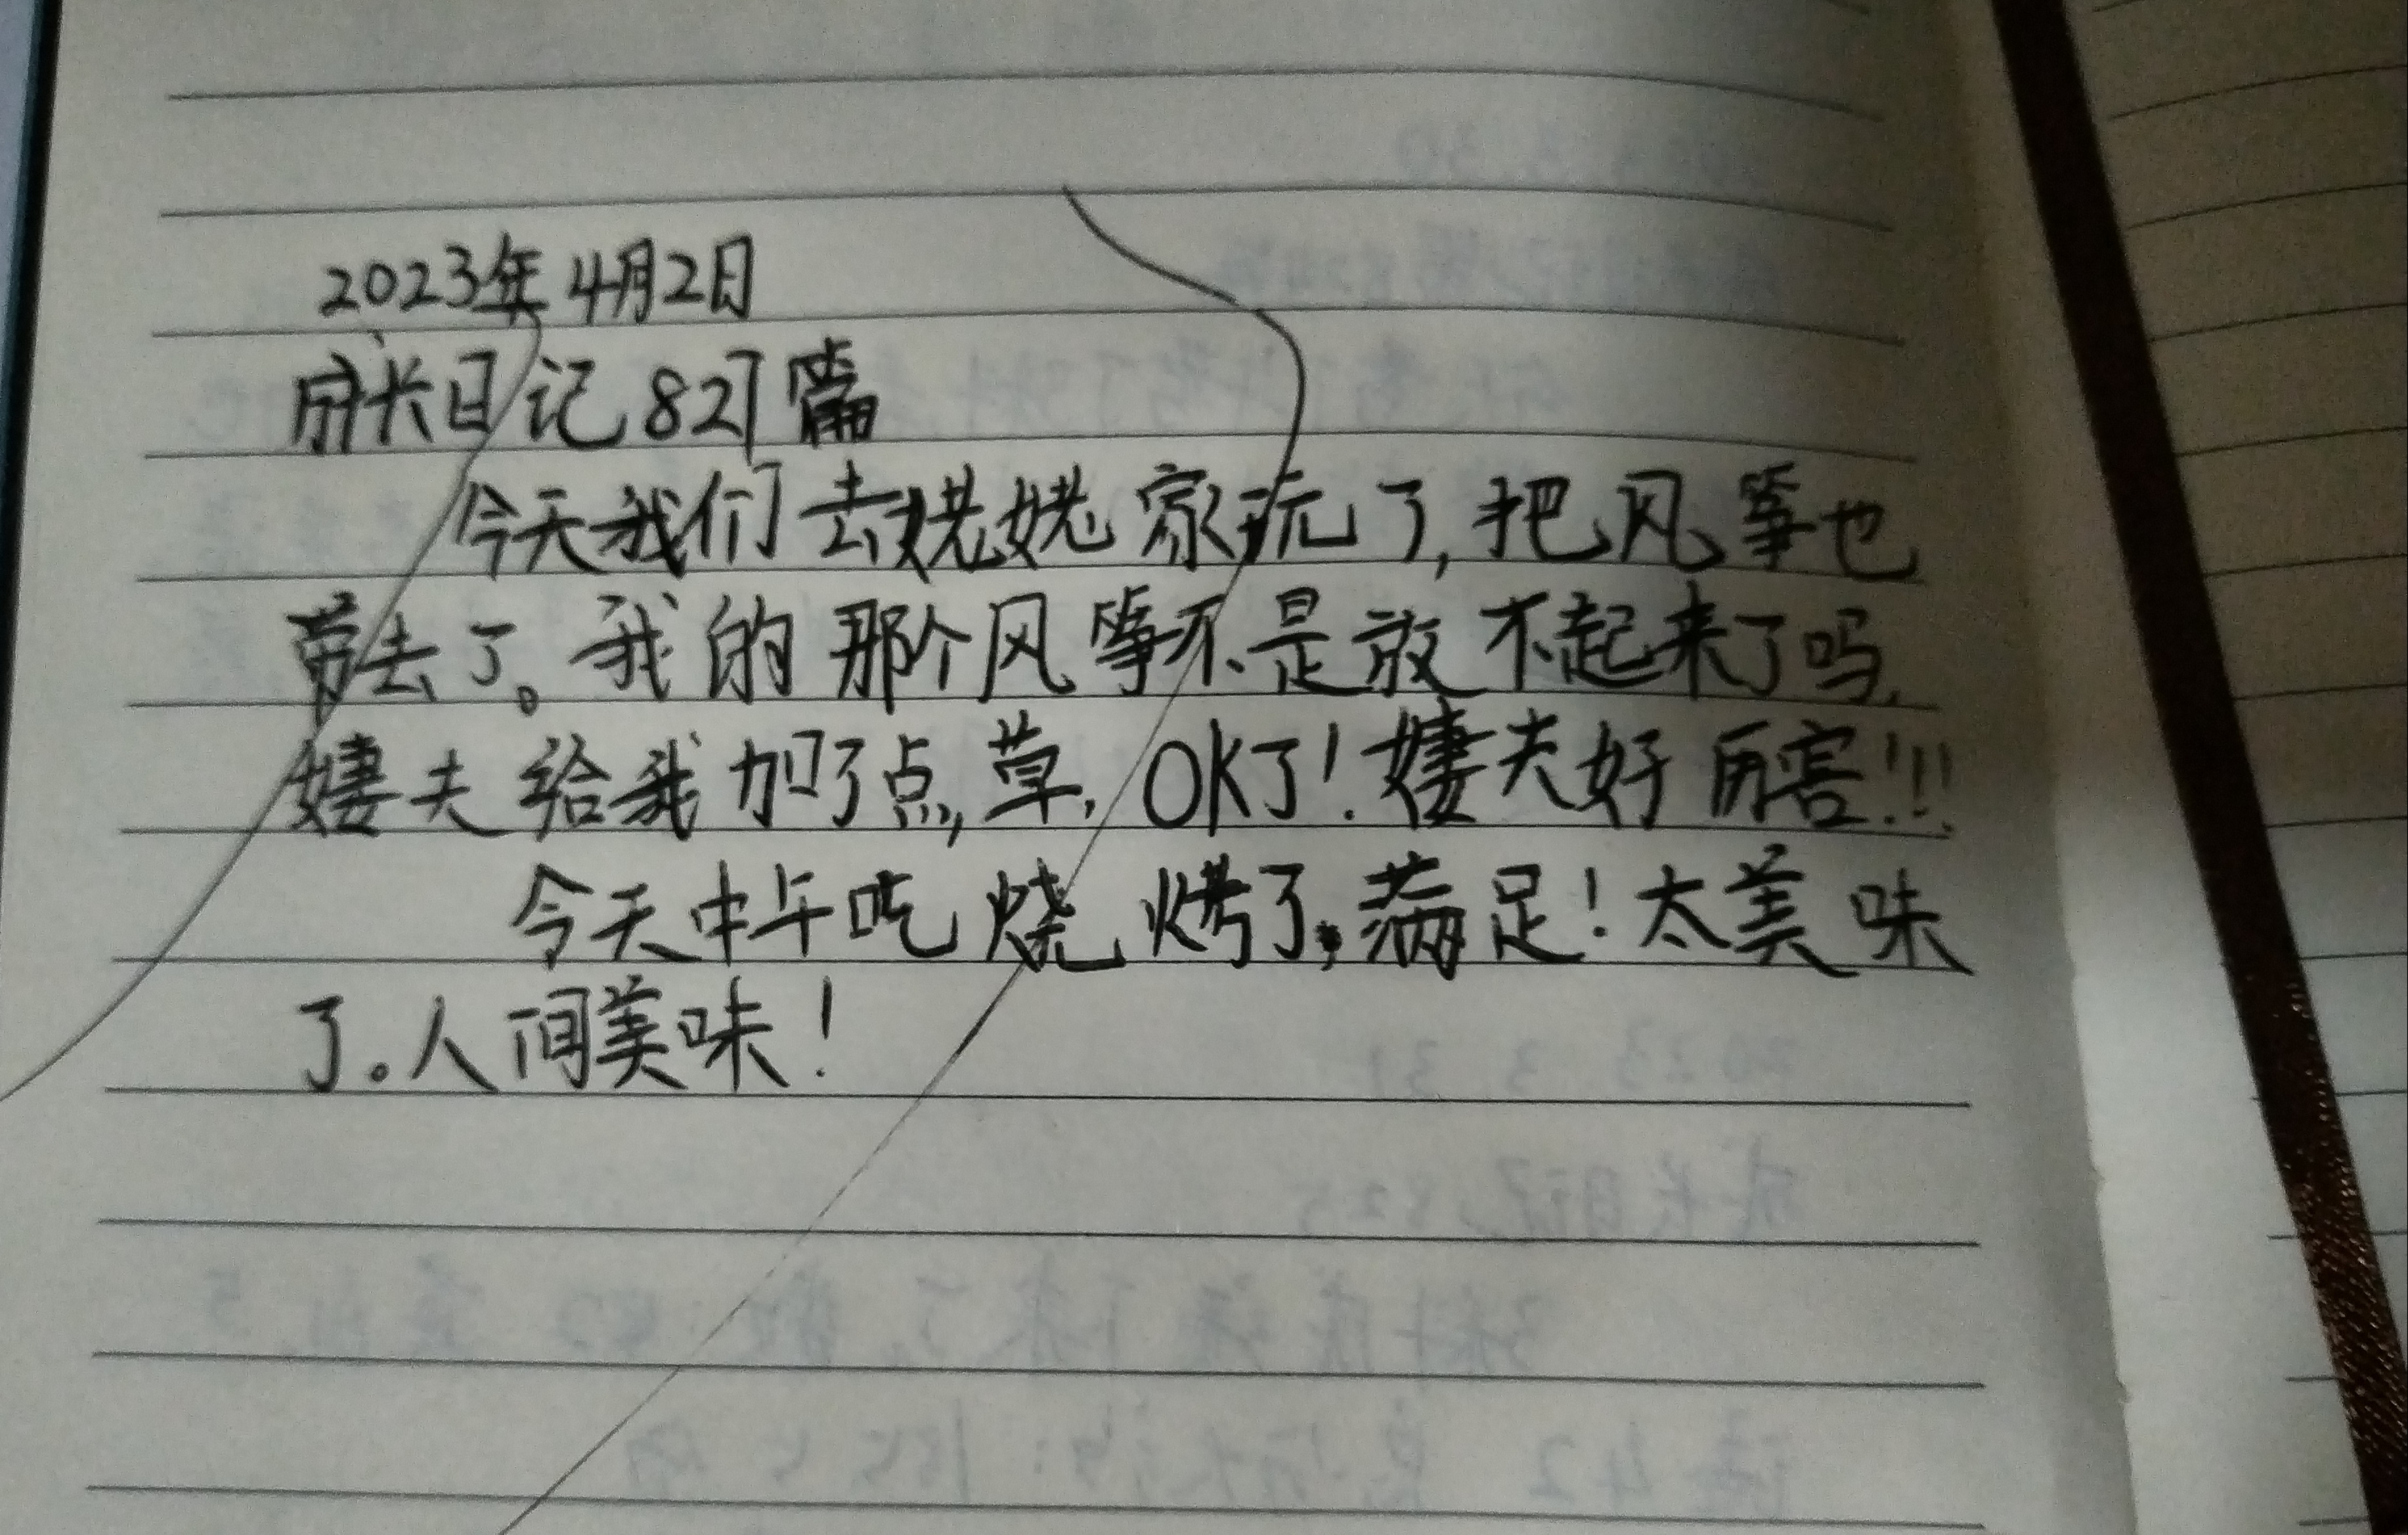 2023年4月2日
成长日记827篇
今天我们去姥姥家玩了,把风筝也
带去了。我的那个风筝不是放不起来了吗,
婕夫给我加了点,草,OK了!婕夫好厉害!!!
今天中午吃烧烤了,满足!太美味
了。人间美味!